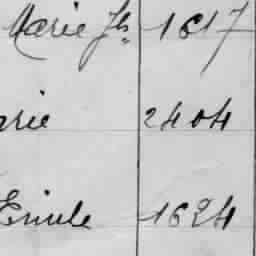 Marie Jh. 1617
arie 2404
Emile 1624